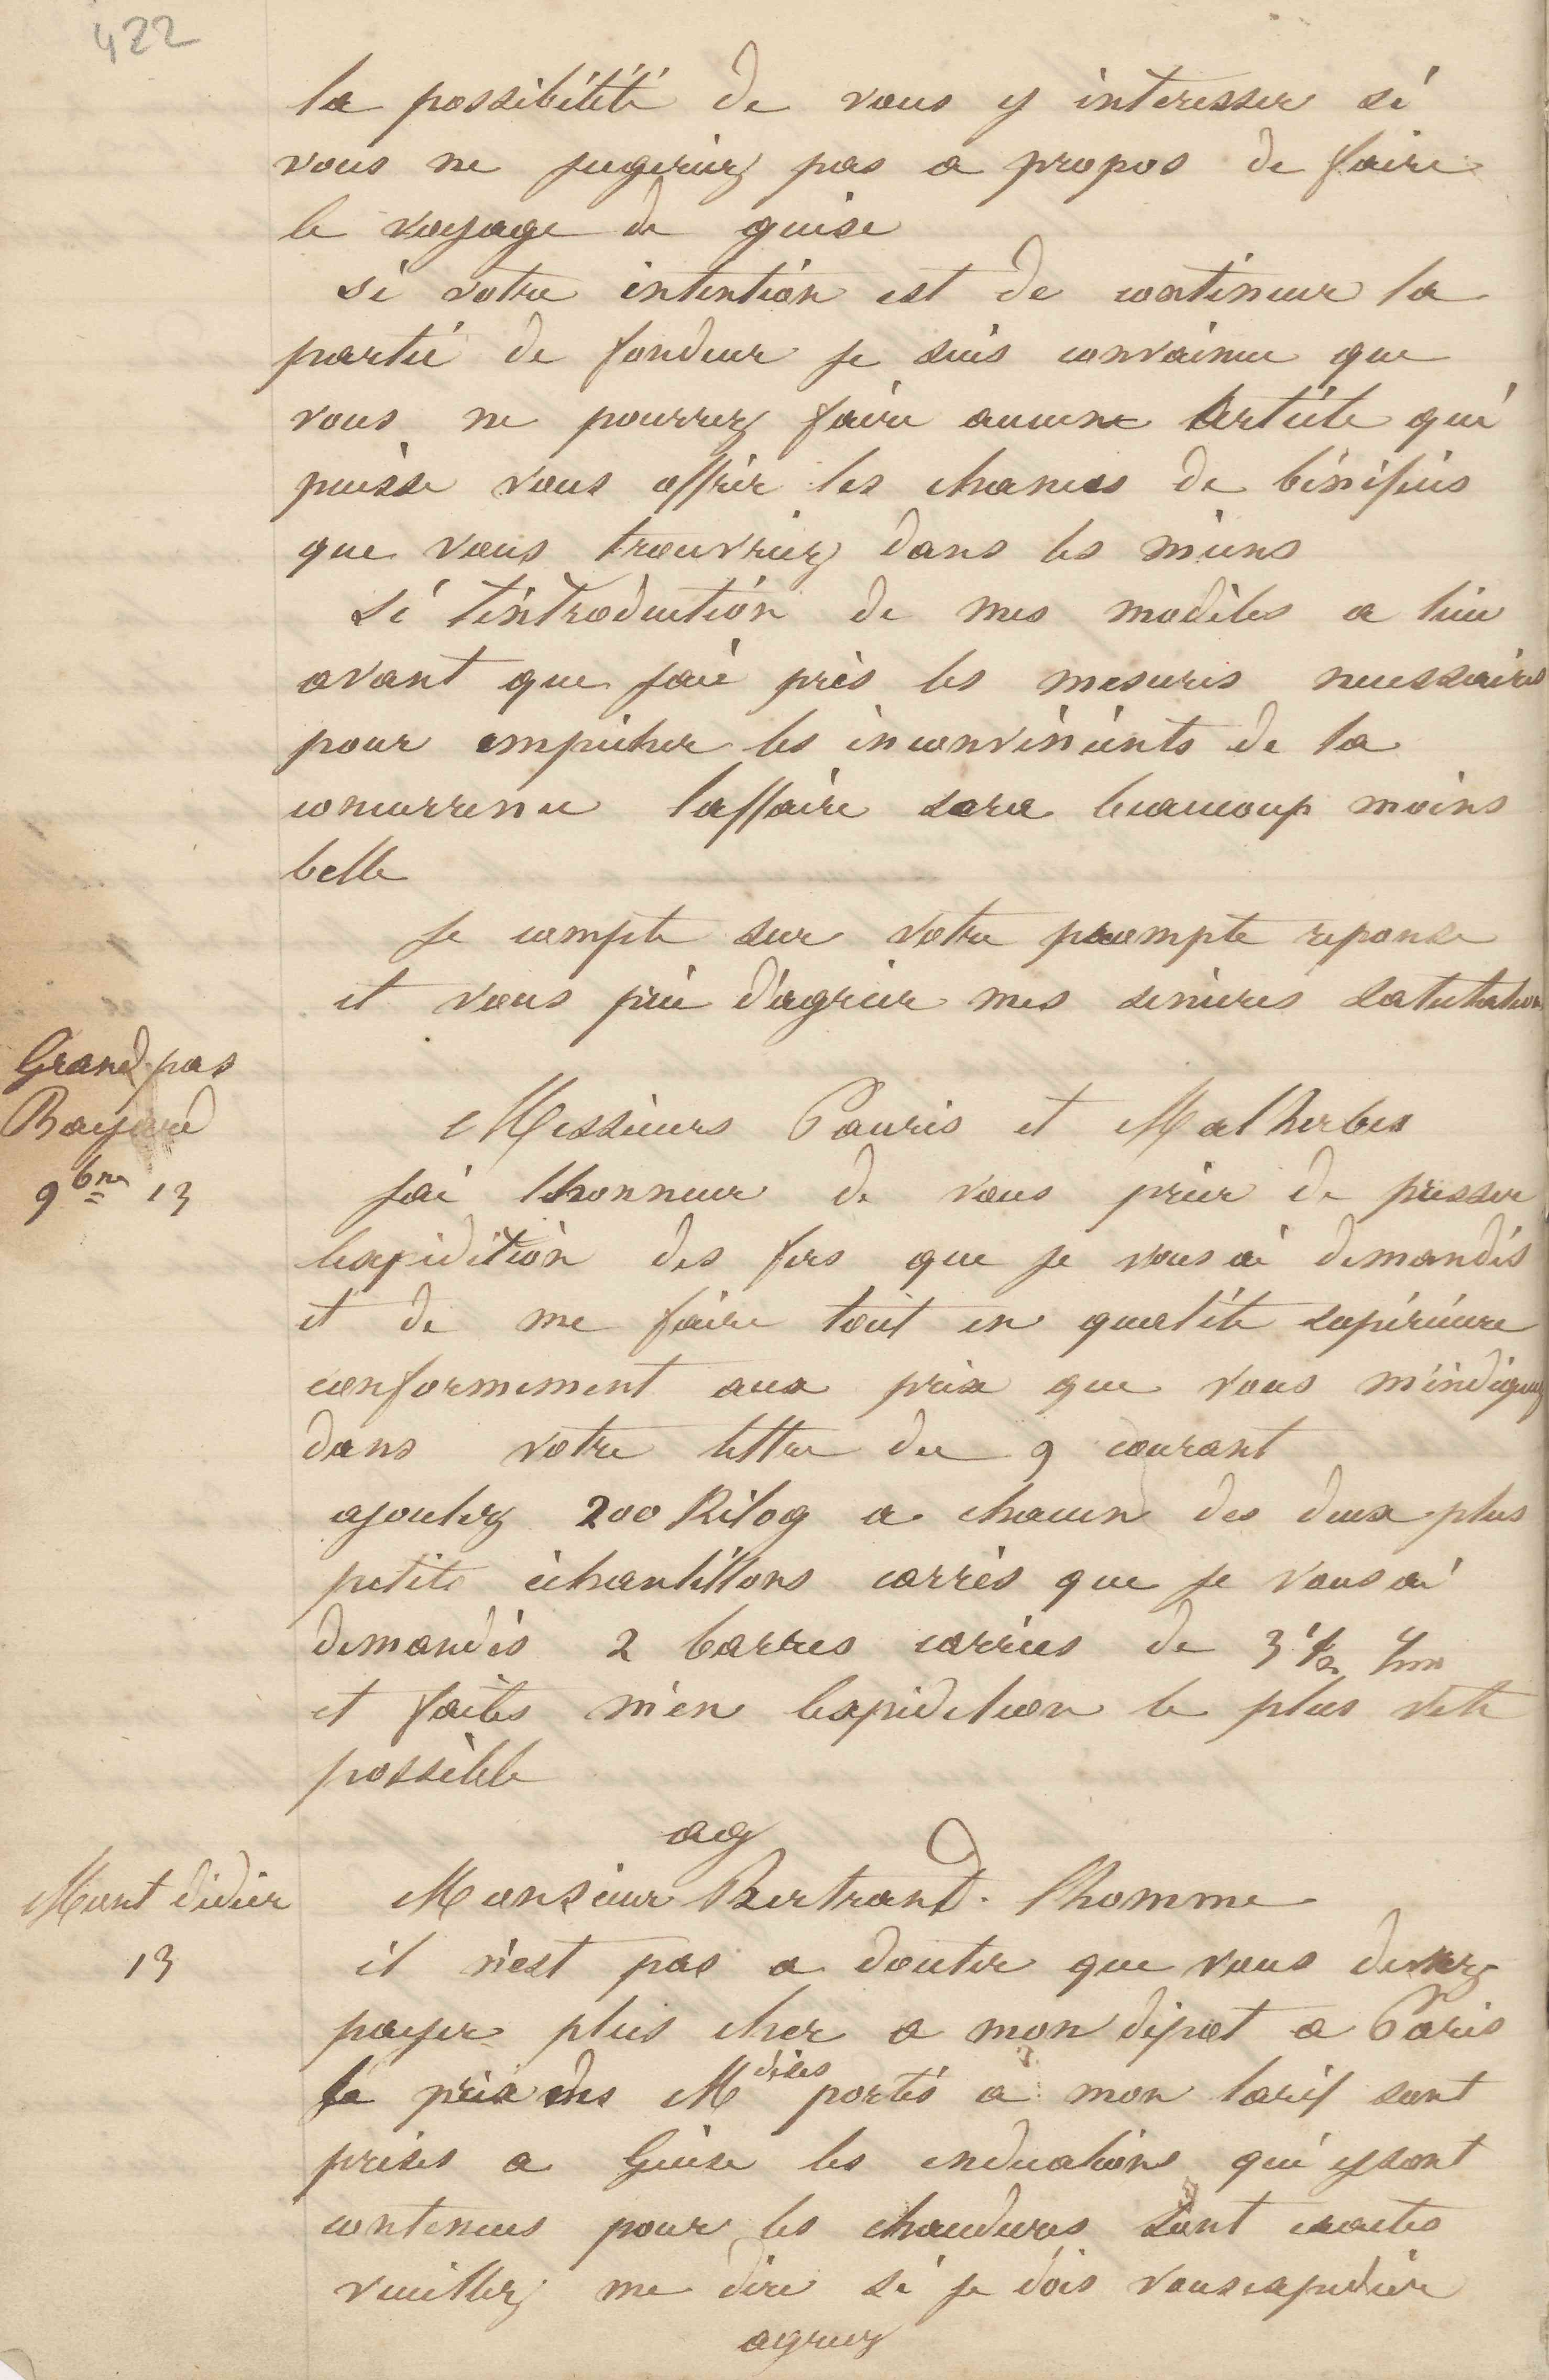 422
la possibilité de vous y interesser si
vous ne jugeriez pas a propos de faire
le voyage de guise
si votre intention est de continuer la
partie de fondeur je suis convaincu que
vous ne pourrez faire aucune Article qui
puisse vous offrir les chances de bénéficies
que vous trouvriez dans les miens
si l'introduction de mes modèles a lieu
avant que jaie pris les mesures necessaires
pour empêcher les inconvénients de la
concurrence laffaire sera beaucoup moins
belle
je compte sur votre prompte reponse
et vous prie d'agréer mes sincères salutations
Grand pas
Bayard
9bre 13
Messieurs Pauris et Malherbes
jai lhonneur de vous prier de presser
lexpédition des fers que je vous ai demandés
et de me faire tout en qualité supérieure
conformement aux prix que vous m'indiquez
dans votre lettre du 9 courant
ajoutez 200 Kilog a chacun des deux plus
petits échantillons carrés que je vous ai
demandés 2 barres carrées de 3 1/2 c/m
et faites m'en lexpedition le plus vite
possible
ag
Mont didier
13
Monsieur Bertrand. lhomme
il n'est pas a douter que vous devrez
payer plus cher a mon dépot a Paris
le prix des Mdises portés a mon tarif sont
prises a Guise les indications qui y sont
contenues pour les chaudieres sont exactes
veuillez me dire si je dois vous expedier
agreez